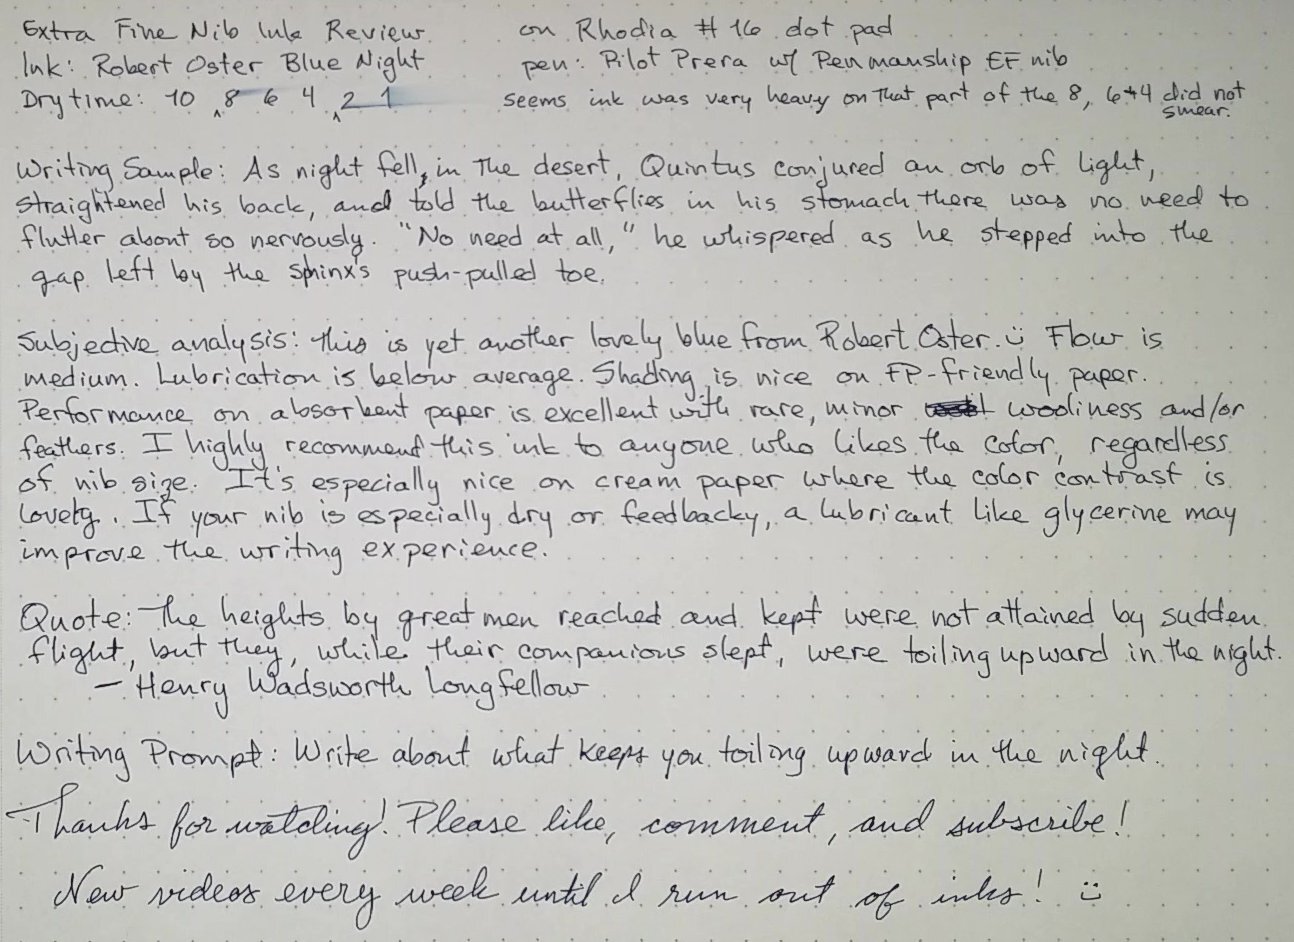 Extra Fine Nib Ink Review on Rhodia #16 dot pad
Ink: Robert Oster Blue Night pen: Pilot Prera w/ Penmanship EF nib
Dry time: 10 8 6 4 2 1 seems ink was very heavy on that part of the 8, 6+4 did not
smear.
Writing Sample: As night fell, in the desert, Quintus conjured an orb of light,
straightened his back, and told the butterflies in his stomach there was no need to
flutter about so nervously. "No need at all," he whispered as he stepped into the
gap left by the sphinx's push-pulled toe.
Subjective analysis: this is yet another lovely blue from Robert Oster. :) Flow is
medium. Lubrication is below average. Shading is nice on FP-friendly paper.
Performance on absorbent paper is excellent with rare, minor wooliness and/or
feathers. I highly recommend this ink to anyone who likes the color, regardless
of nib size. It's especially nice on cream paper where the color contrast is
lovely. If your nib is especially dry or feedbacky, a lubricant like glycerine may
improve the writing experience.
Quote: The heights by great men reached and kept were not attained by sudden
flight, but they, while their companions slept, were toiling upward in the night.
— Henry Wadsworth Longfellow
Writing Prompt: Write about what keeps you toiling upward in the night.
Thanks for watching! Please like, comment, and subscribe!
New videos every week until I run out of inks! :)